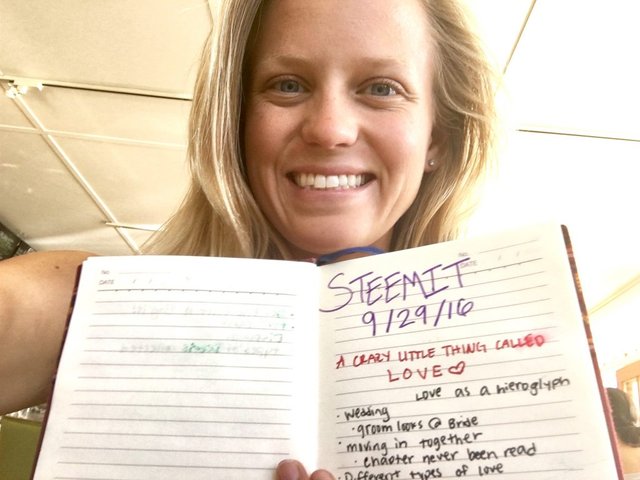 No.
DATE
STEEMIT
No.
DATE
9/29/16
A CRAZY LITTLE THING CALLED
LOVE♡
Love as a hieroglyph
· Wedding
· groom looks @ Bride
· moving in together
· chapter never been read
· Different types of love